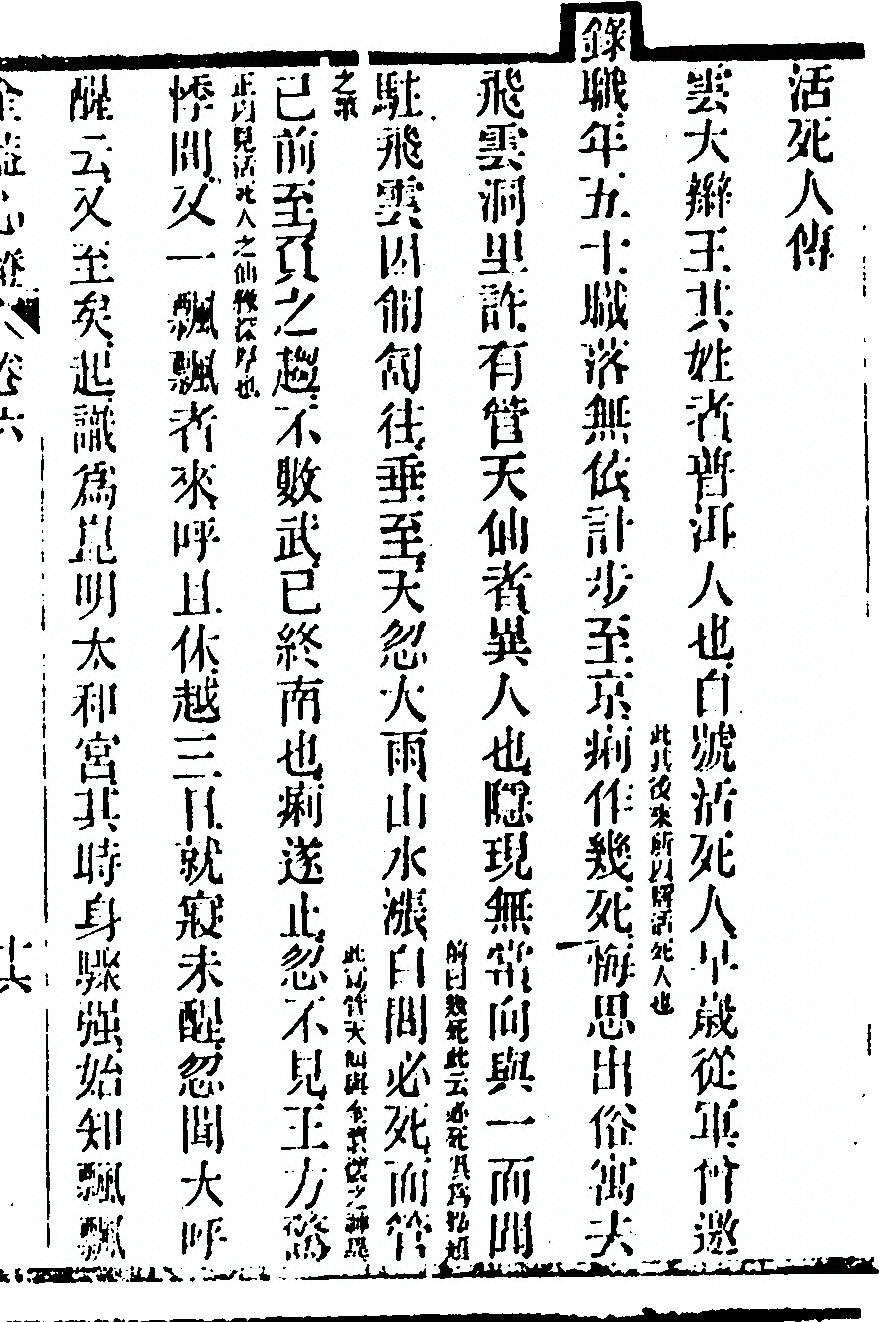 活死人傳
雲大辯王其姓者普洱人也自號活死人早歲從軍曾邀
此其後來所以號活死人也
錄職年五十職落無依計步至京痢作幾死悔思出俗寓夫
飛雲洞里許有管天仙者異人也隱現無常向與一面聞
前曰幾死此云必死其為
駐飛雲因匍匐往垂至天忽大雨山水漲自問必死而管
此寫管天仙與金
之眾
已前至負之趨不數武已終南也痢遂止忽不見王方驚
正以見活死人之仙緣深厚也
悸間又一飄飄者來呼且休越三日就寢未醒忽聞大呼
醒云又至矣起識為崑明太和宮其時身驟强始知飄飄
金蓋心燈
卷六
十六